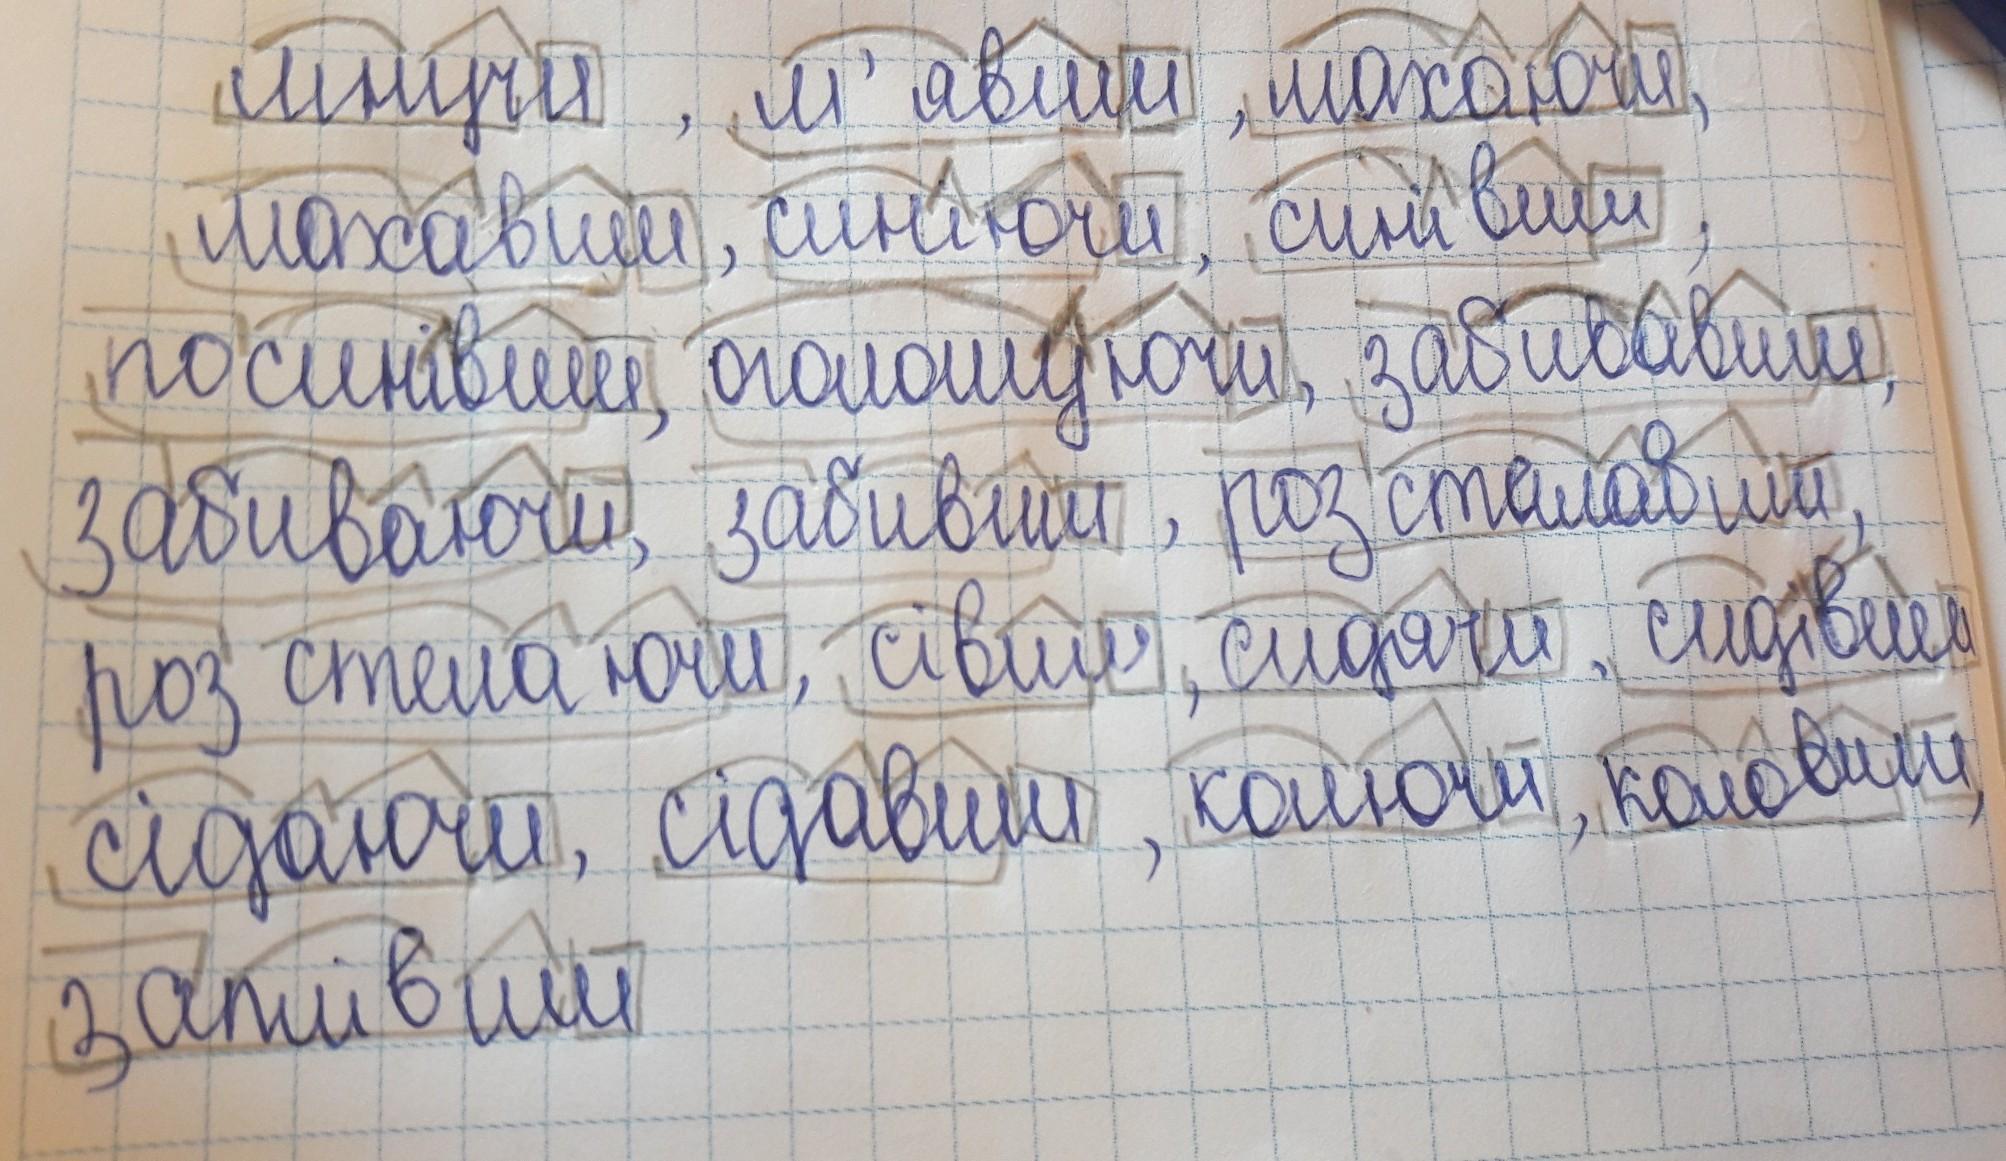 мнучи, м'явши, махаючи,
махавши, синіючи, синівши,
посинівши, оголошуючи, забивавши,
забиваючи, забивши, розстилавши,
розстелаючи, сівши, сидячи, сидівши
сідаючи, сідавши, колючи, коловши,
запливши